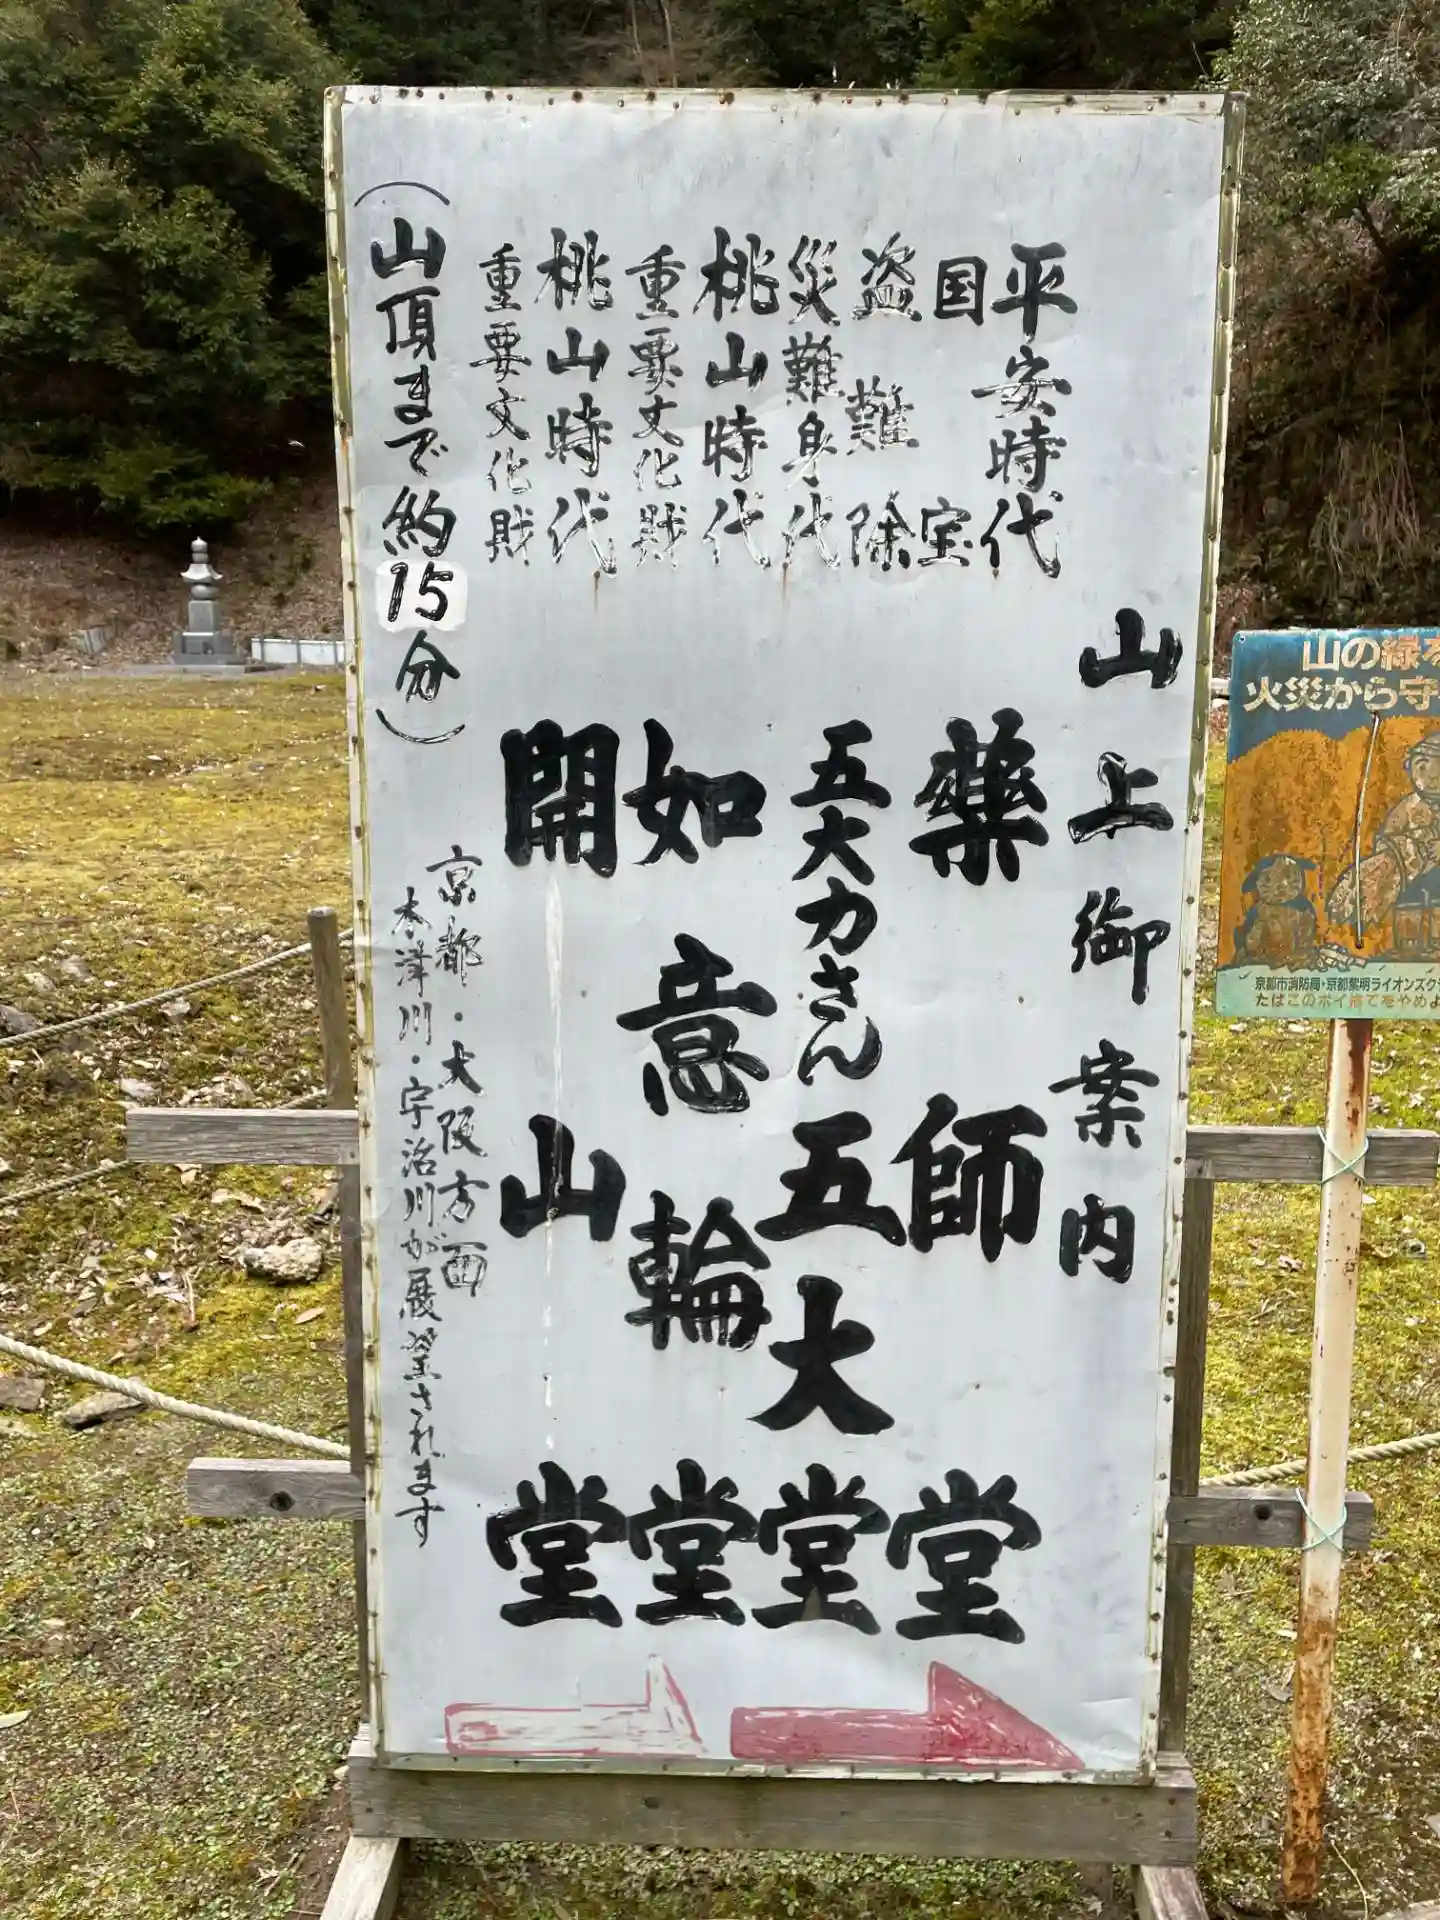 山上御案内
平安時代
国宝
薬師堂
盗難除
災難身代
五大力さん
五大堂
桃山時代
重要文化財
如意輪堂
桃山時代
重要文化財
開山堂
(山頂まで約15分)
京都・大阪方面
木津川・宇治川が展望されます
山の緑を
火災から守
京都市消防局・京都紫明ライオンズク
たばこのポイ捨てをやめよ